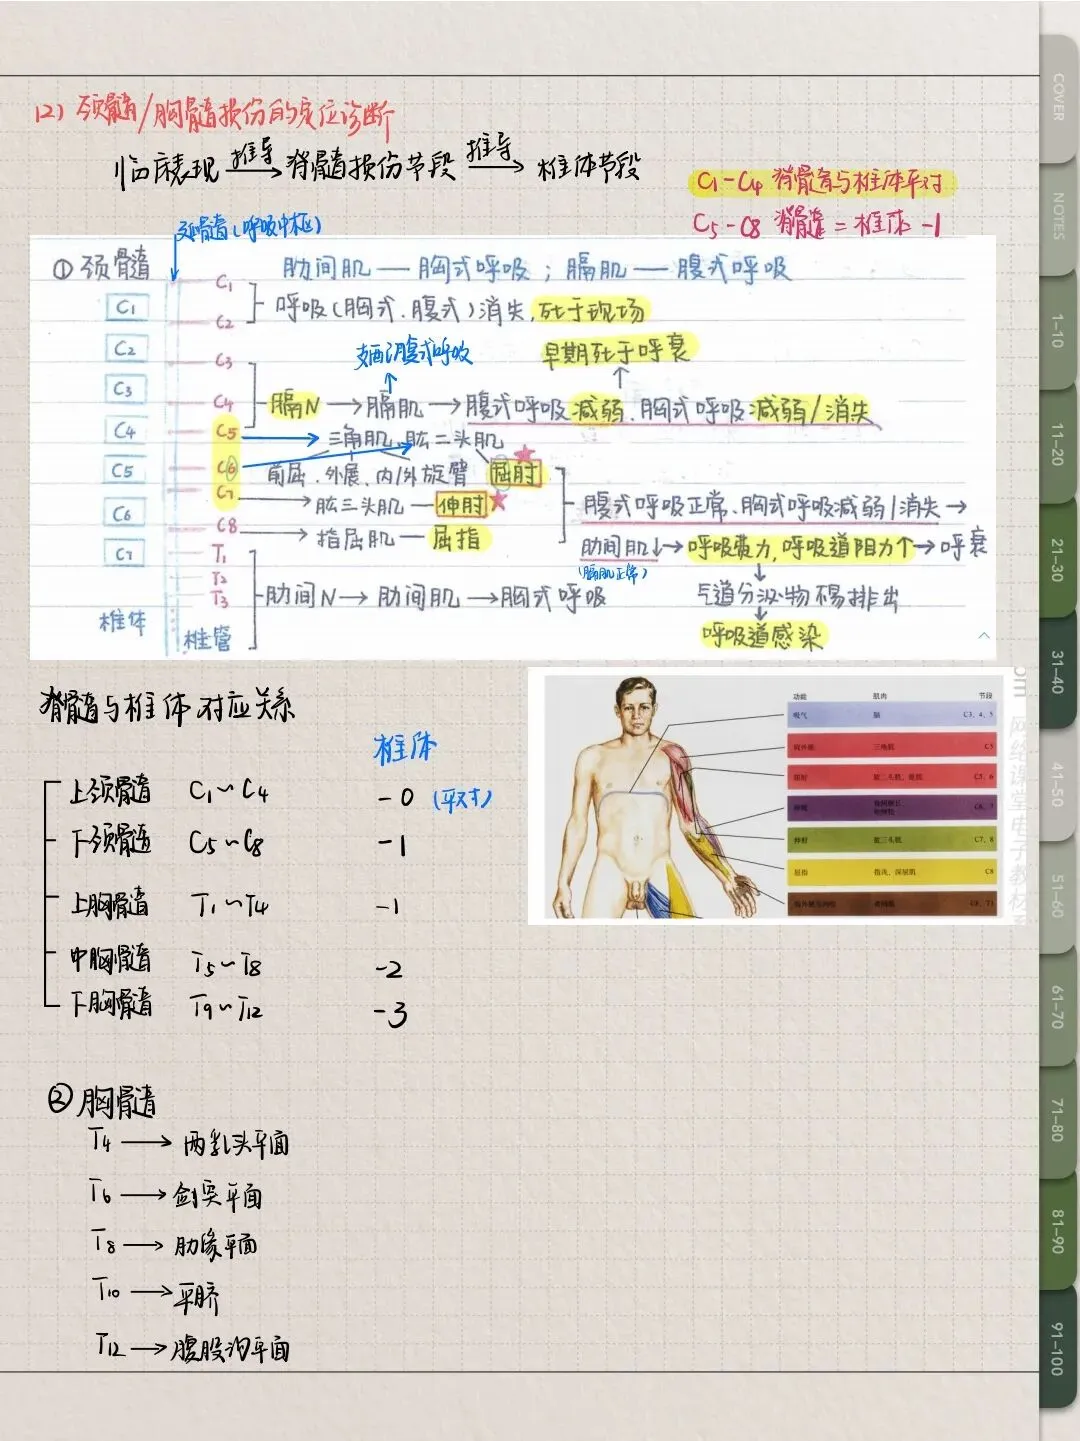 (2) 颈髓/胸髓损伤的定位诊断
临床表现 推导→ 脊髓损伤节段 推导→ 椎体节段
C1-C4 脊髓与椎体平对
C5-C8 脊髓 = 椎体 -1
延髓(呼吸中枢)
① 颈髓
肋间肌 — 胸式呼吸 ; 膈肌 — 腹式呼吸
C1 C2 C3 C4 C5 C6 C7
椎体
C1 C2 C3 C4 C5 C6 C7 C8 T1 T2 T3
椎管
呼吸(胸式、腹式)消失, 死于现场
支配腹式呼吸
早期死于呼衰
膈N → 膈肌 → 腹式呼吸减弱、胸式呼吸减弱/消失
三角肌、肱二头肌
前屈、外展、内/外旋臂 屈肘
肱三头肌 — 伸肘
指屈肌 — 屈指
腹式呼吸正常、胸式呼吸减弱/消失 →
肋间肌↓ → 呼吸费力, 呼吸道阻力↑ → 呼衰
(膈肌正常)
气道分泌物不易排出
呼吸道感染
肋间N → 肋间肌 → 胸式呼吸
脊髓与椎体对应关系
椎体
上颈髓 C1~C4 -0 (平对)
下颈髓 C5~C8 -1
上胸髓 T1~T4 -1
中胸髓 T5~T8 -2
下胸髓 T9~T12 -3
功能 肌肉 节段
吸气 膈 C3, 4, 5
三角肌 C5
C5, 6
C6, 7
伸肘 肱三头肌 C7, 8
屈指 指浅、深屈肌 C8
C8, T1
网络课堂电子教材
② 胸髓
T4 → 两乳头平面
T6 → 剑突平面
T8 → 肋缘平面
T10 → 平脐
T12 → 腹股沟平面
COVER
NOTES
1-10
11-20
21-30
31-40
41-50
51-60
61-70
71-80
81-90
91-100